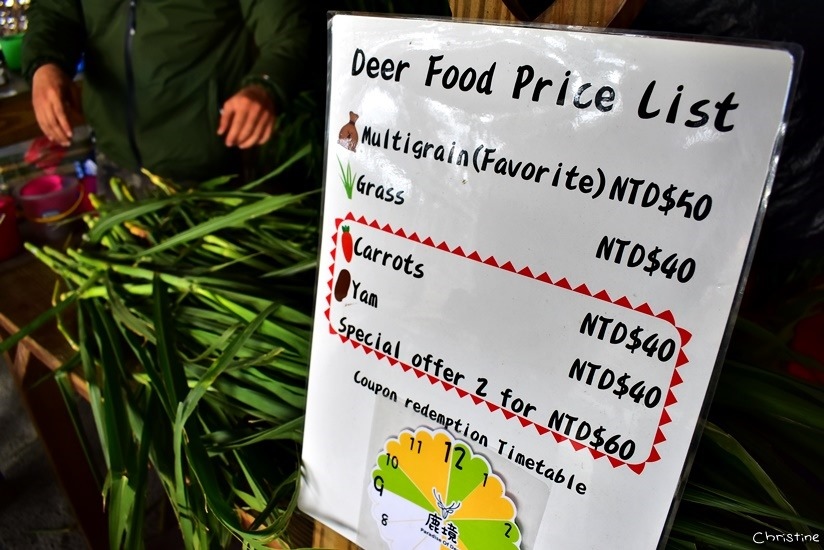 Deer Food Price List
Multigrain(Favorite) NTD$50
Grass NTD$40
Carrots NTD$40
Yam NTD$40
Special offer 2 for NTD$60
Coupon redemption Timetable
11 12 1
10 2
9
8
鹿境
Paradise Of
Christine